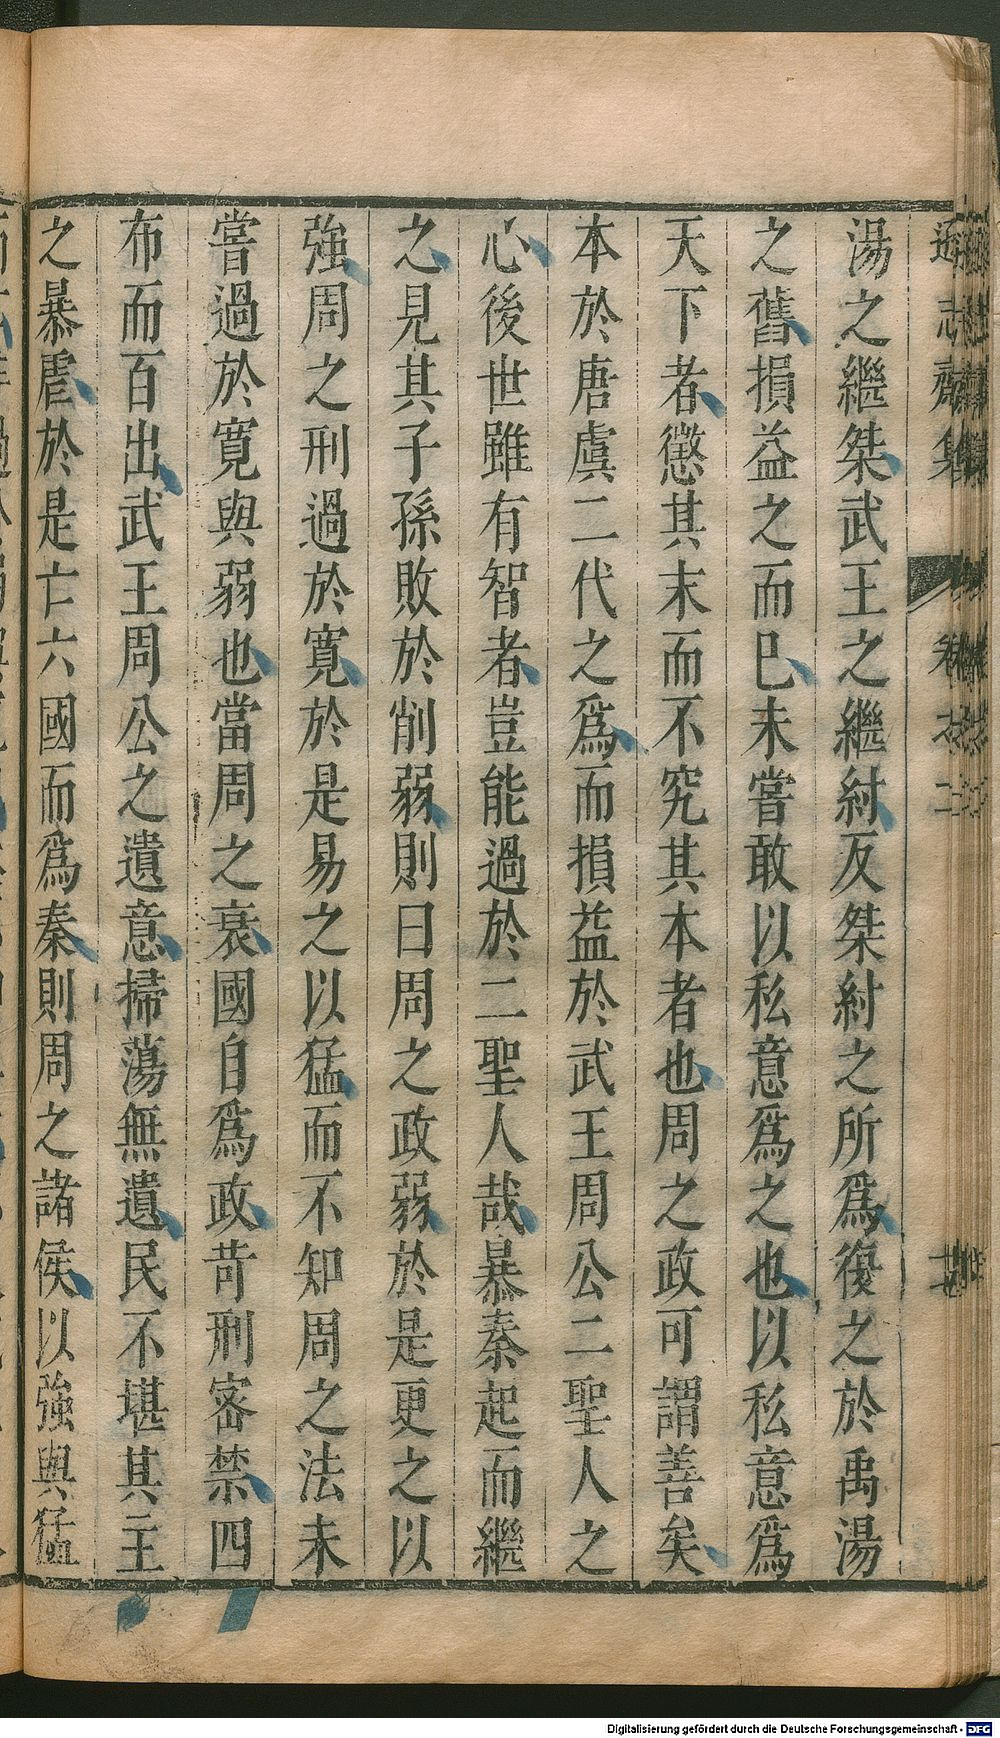 湯之繼桀武王之繼紂反桀紂之所爲復之於禹湯
之舊損益之而已未嘗敢以私意爲之也以私意爲
天下者懲其末而不究其本者也周之政可謂善矣
本於唐虞二代之爲而損益於武王周公二聖人之
心後世雖有智者豈能過於二聖人哉暴秦起而繼
之見其子孫敗於削弱則曰周之政弱於是更之以
強周之刑過於寬於是易之以猛而不知周之法未
嘗過於寬與弱也當周之衰國自爲政苛刑密禁四
布而百出武王周公之遺意掃蕩無遺民不堪其主
之暴虐於是亡六國而爲秦則周之諸侯以強與猛
Digitalisierung gefördert durch die Deutsche Forschungsgemeinschaft - DFG